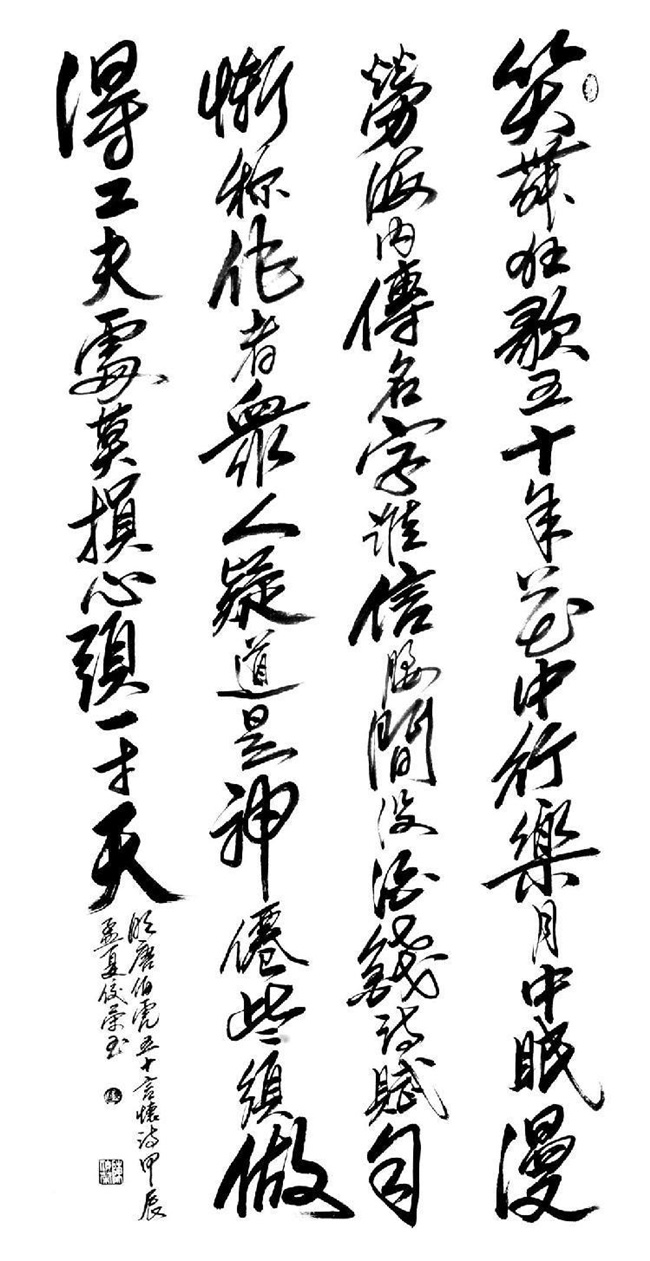 笑舞狂歌五十年花中行樂月中眠漫
勞海内傳名字誰信腰間没酒錢詩賦自
慚稱作者衆人疑道是神僊些須做
得工夫處莫損心頭一寸天
明唐伯虎五十言懷詩甲辰
孟夏俊榮书